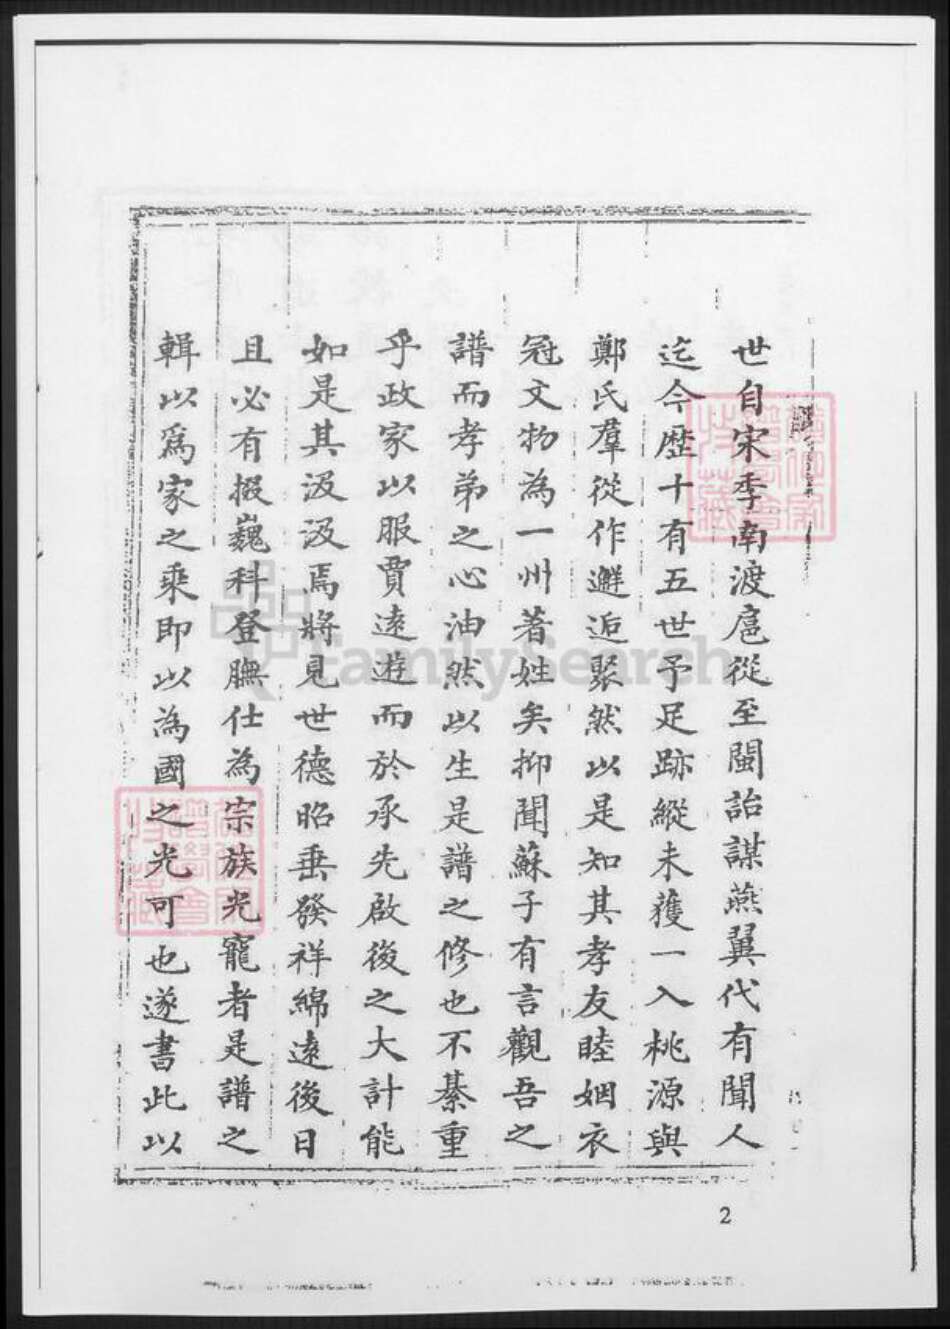 世自宋季南渡扈從至閩詒謀燕翼代有聞人
迄今歷十有五世予足跡縱未獲一入桃源與
鄭氏羣從作邂逅聚然以是知其孝友睦婣衣
冠文物為一州著姓矣抑聞蘇子有言觀吾之
譜而孝弟之心油然以生是譜之修也不綦重
乎政家以服賈遠遊而於承先啟後之大計能
如是其汲汲焉將見世德昭垂發祥綿遠後日
且必有掇巍科登膴仕為宗族光寵者是譜之
輯以爲家之乘即以為國之光可也遂書此以
2
FamilySearch